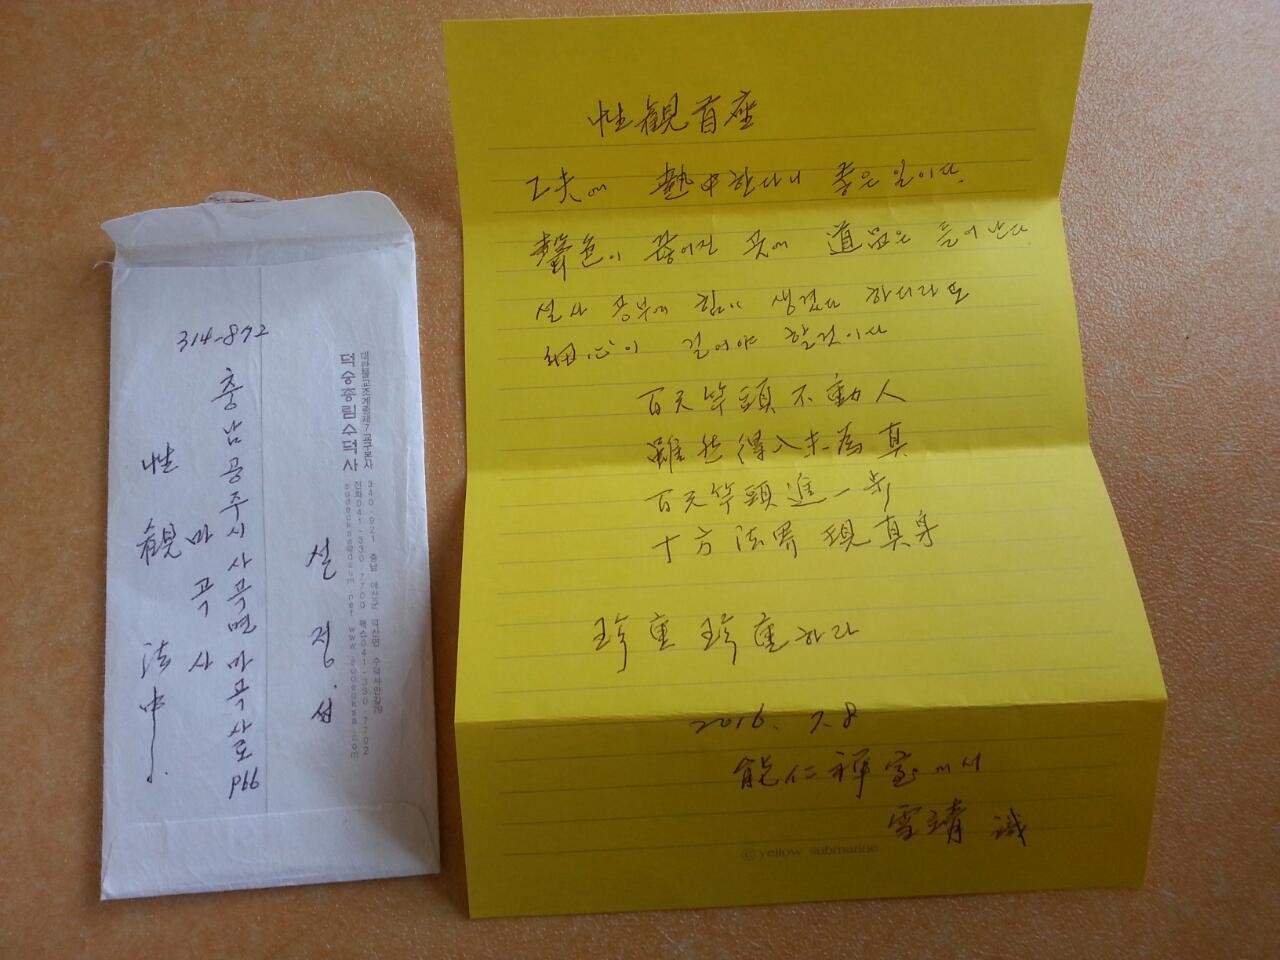 314-872
충남공주시사곡면마곡사로966
마곡사
性觀 法中
대한불교조계종제7교구본사
덕숭총림수덕사
340-921 충남 예산군 덕산면 수덕사안길79
전화041-330-7700 팩스041-330-7702
설정 섭
性觀首座
工夫에 熱中한다니 좋은 일이다.
聲色이 끊어진 곳에 道品은 들어난다
설사 공부에 힘이 생겼다 하더라도
細心이 길어야 할것이다
百尺竿頭不動人
雖然得入未為真
百尺竿頭進一步
十方法界現真身
珍重珍重하라
2016. 7.8
能仁禪室에서
雪靖 識
© yellow submarine